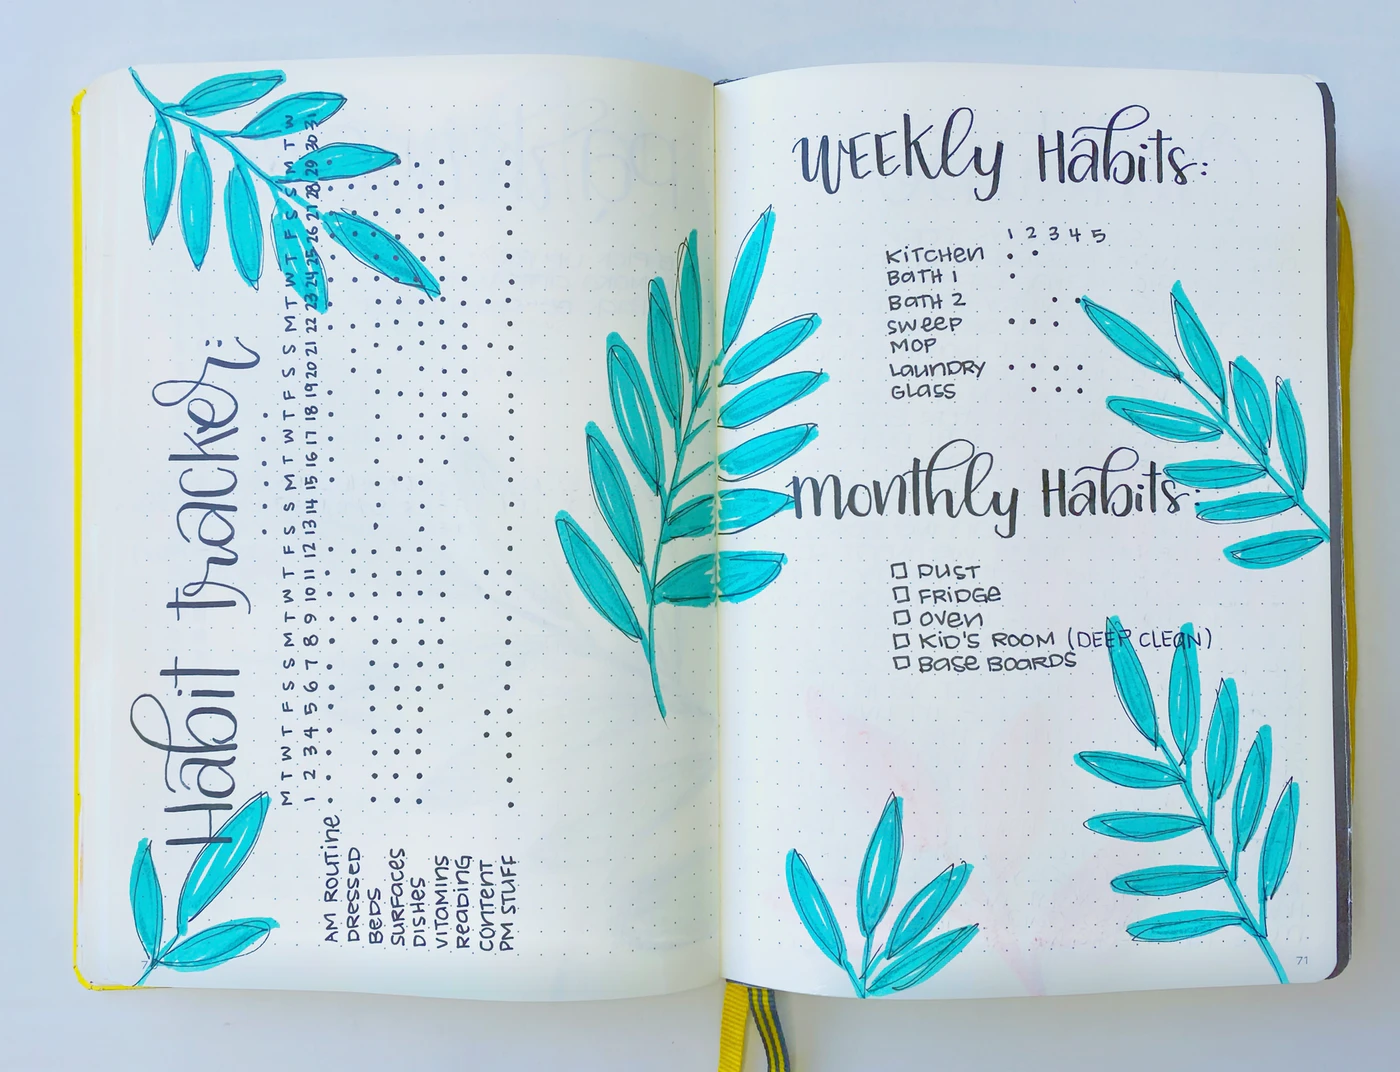 Habit tracker:
M T W T F S S M T W T F S S M T W T F S S M T W T F S S M T W
1 2 3 4 5 6 7 8 9 10 11 12 13 14 15 16 17 18 19 20 21 22 23 24 25 26 27 28 29 30 31
AM ROUTINE
DRESSED
BEDS
SURFACES
DISHES
VITAMINS
READING
CONTENT
PM STUFF
WEEKly Habits:
1 2 3 4 5
KITCHEN
BATH 1
BATH 2
SWEEP
MOP
LAUNDRY
GLASS
monthly Habits:
DUST
FRIDGE
OVEN
KID'S ROOM (DEEP CLEAN)
BASE BOARDS
71